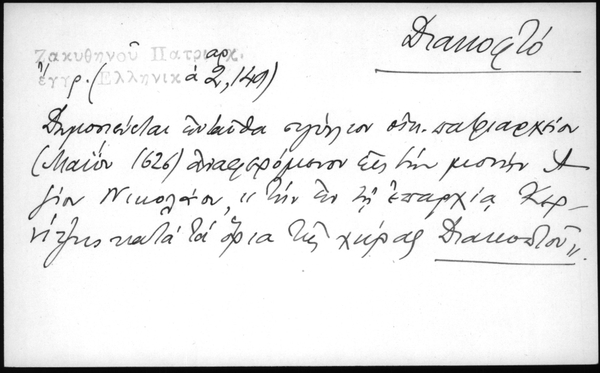 Διακοφτό
Ζακυθηνοῦ Πατριαρχ.
ἔγγρ. (Ἑλληνικά 2, 149)
Δημοσιεύεται ἐνταῦθα σιγίλλιον οἰκ. πατριαρχεῖον
(Μαΐου 1626) ἀναφερόμενον εἰς τὴν μονὴν Ἁ-
γίου Νικολάου, "τὴν ἐν τῇ ἐπαρχίᾳ Κερ-
νίτζης κατὰ τὰ ὅρια τῆς χώρας Διακοπτοῦ".